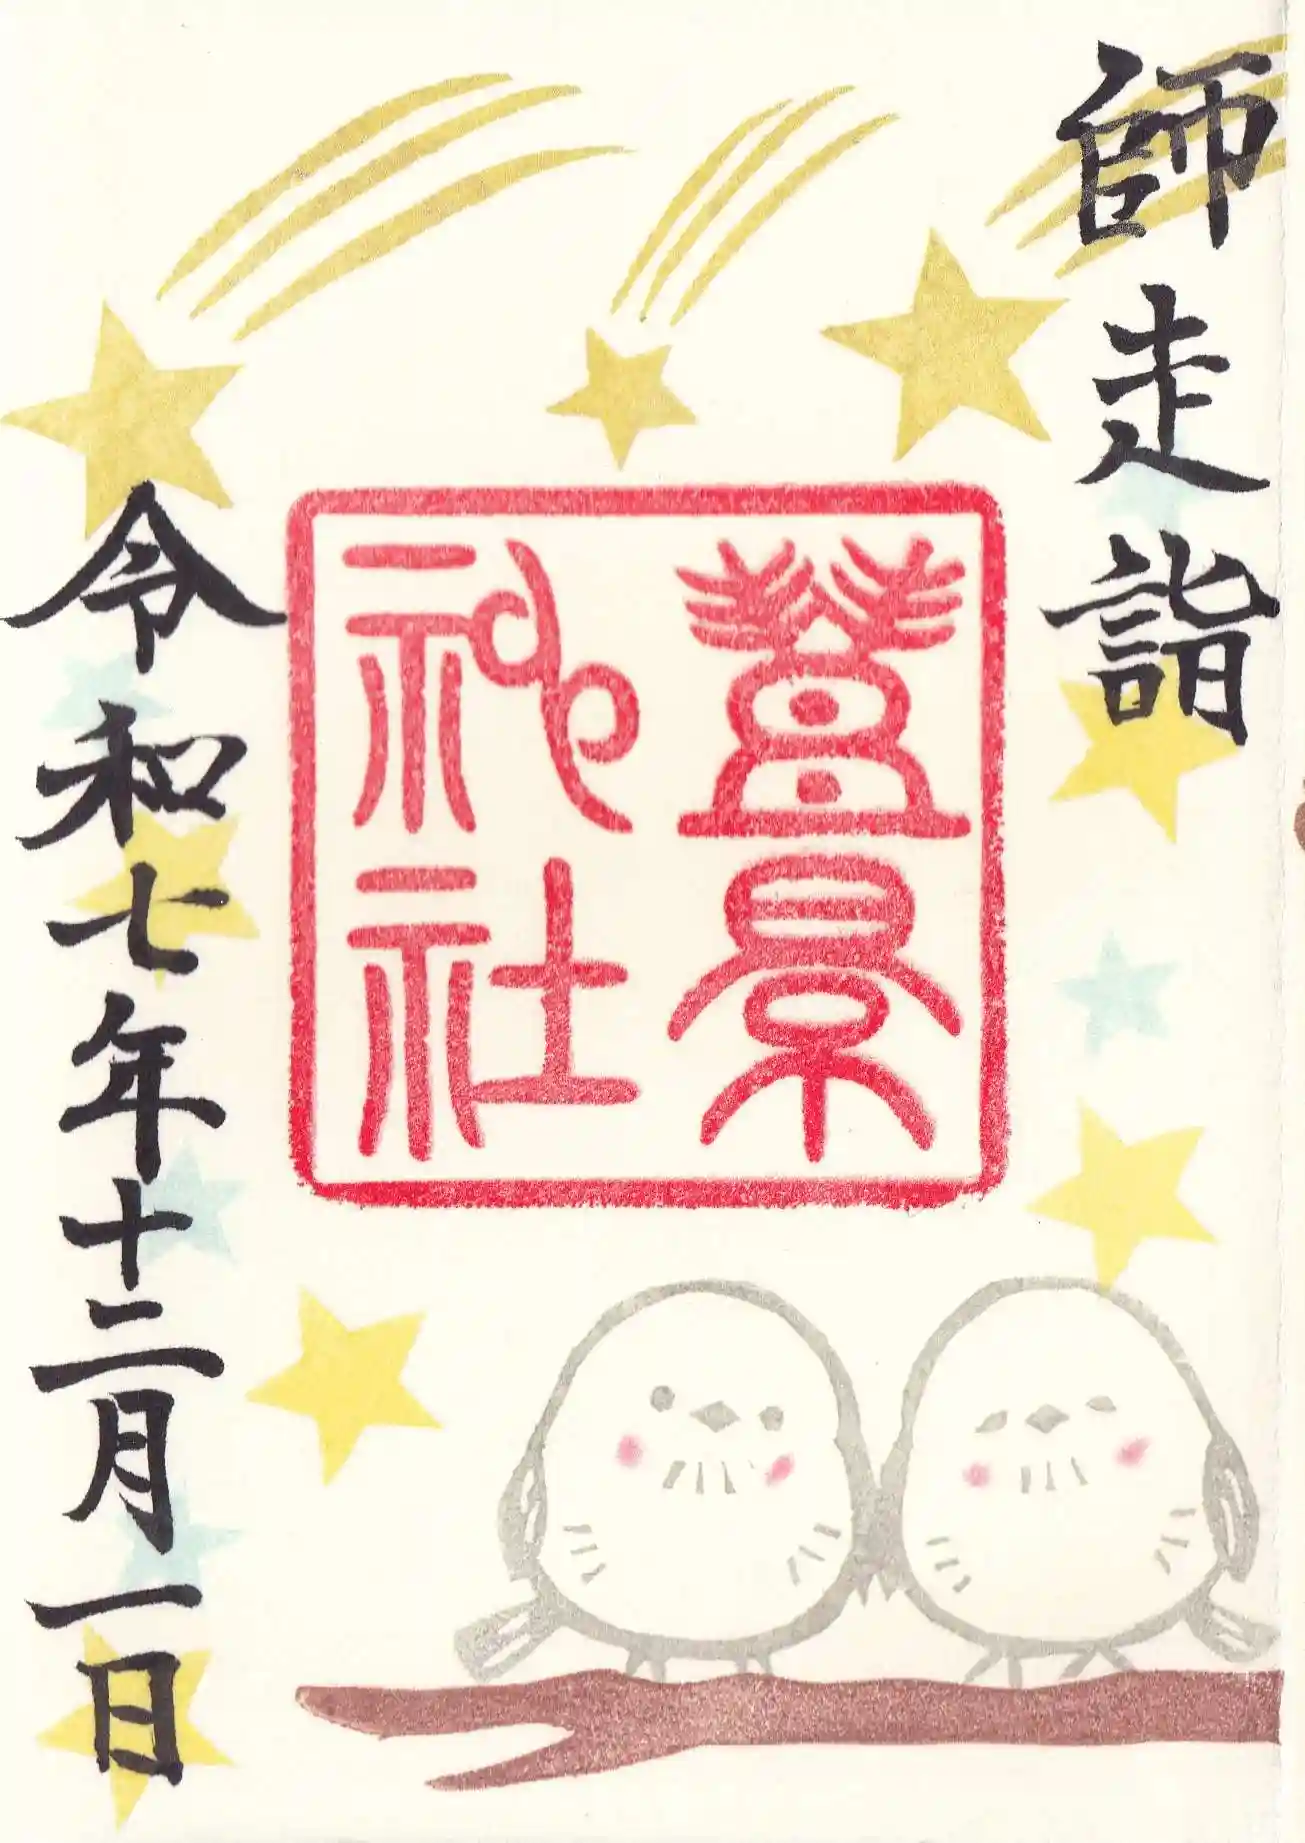 師走詣
豊景
神社
令和七年十二月一日